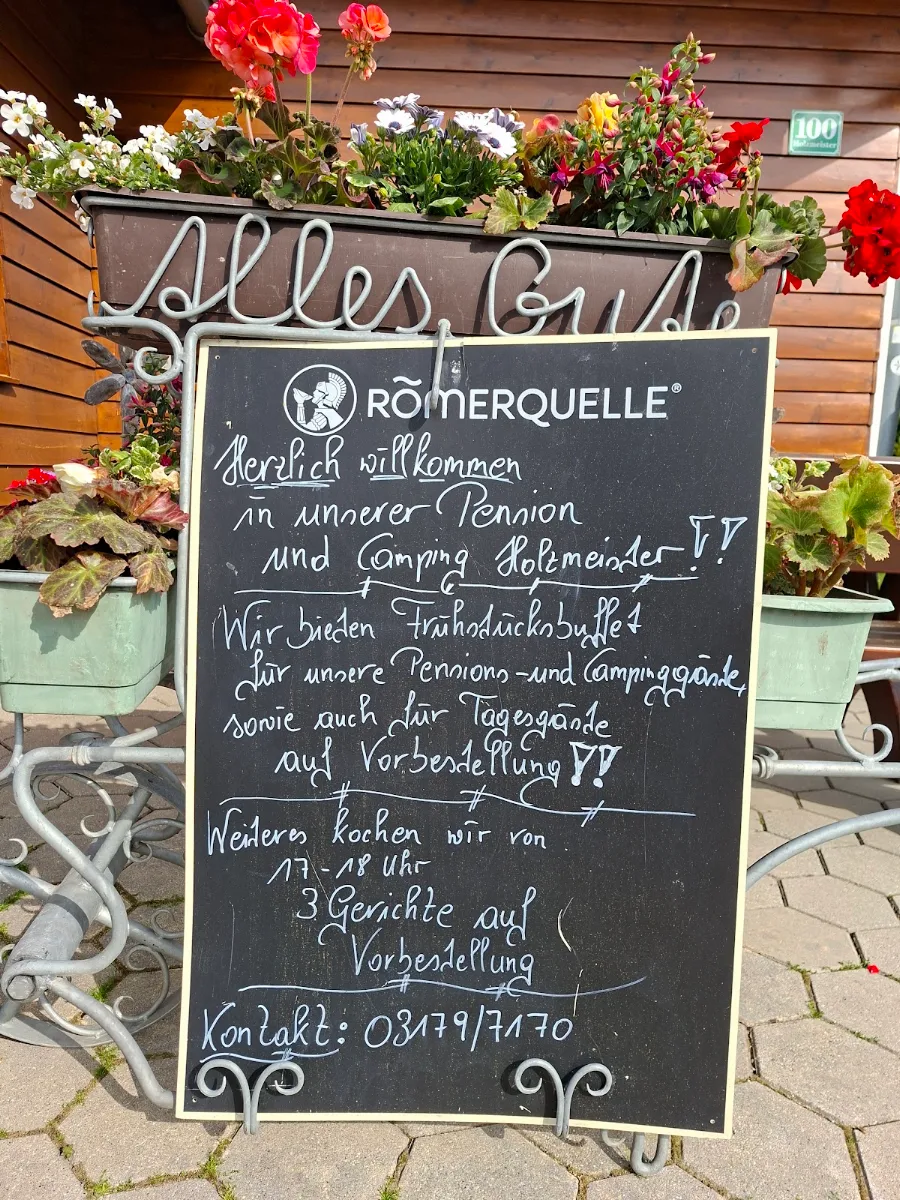 100
Holzmeister
Alles Gute
RÖMERQUELLE®
Herzlich willkommen
in unserer Pension
und Camping Holzmeister!!
Wir bieten Frühstücksbuffet
für unsere Pensions-und Campinggäste,
sowie auch für Tagesgäste
auf Vorbestellung!!
Weiteres kochen wir von
17-18 Uhr
3 Gerichte auf
Vorbestellung
Kontakt: 03179/7170